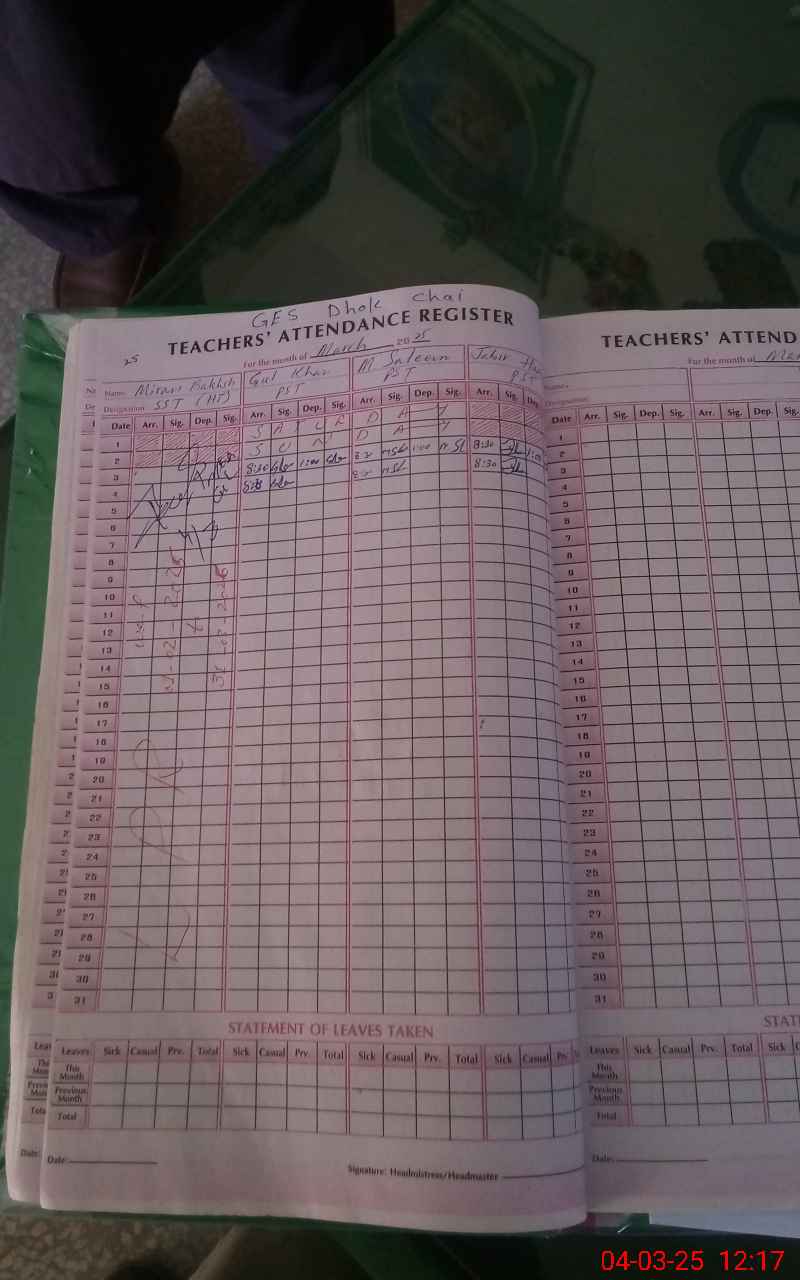 GES Dhok Chai
TEACHERS' ATTENDANCE REGISTER
25 For the month of March 2025
Name. Miran Bakhsh Gul Khan M Saleem Jabir
Designation SST (HT) PST PST PST
Date Arr. Sig. Dep. Sig. Arr. Sig. Dep. Sig. Arr. Sig. Dep. Sig. Arr. Sig. Dep
1 S A T U R D A Y
2 S U N D A Y
3 8:30 1:00 1:00 8:30 1:00
4 8:30
5
6
7
8
9
10
11
12
13
14
15
16
17
18
19
20
21
22
23
24
25
26
27
28
29
30
31
L P R
STATEMENT OF LEAVES TAKEN
Leaves Sick Casual Prv. Total Sick Casual Prv. Total Sick Casual Prv. Total Sick Casual Prv
This Month
Previous Month
Total
Date:
Signature: Headmistress/Headmaster
TEACHERS' ATTEND
For the month of Mar
Name.
Designation
Date Arr. Sig. Dep. Sig. Arr. Sig. Dep.
1
2
3
4
5
6
7
8
9
10
11
12
13
14
15
16
17
18
19
20
21
22
23
24
25
26
27
28
29
30
31
STAT
Leaves Sick Casual Prv. Total Sick
This Month
Previous Month
Total
Date:
04-03-25 12:17